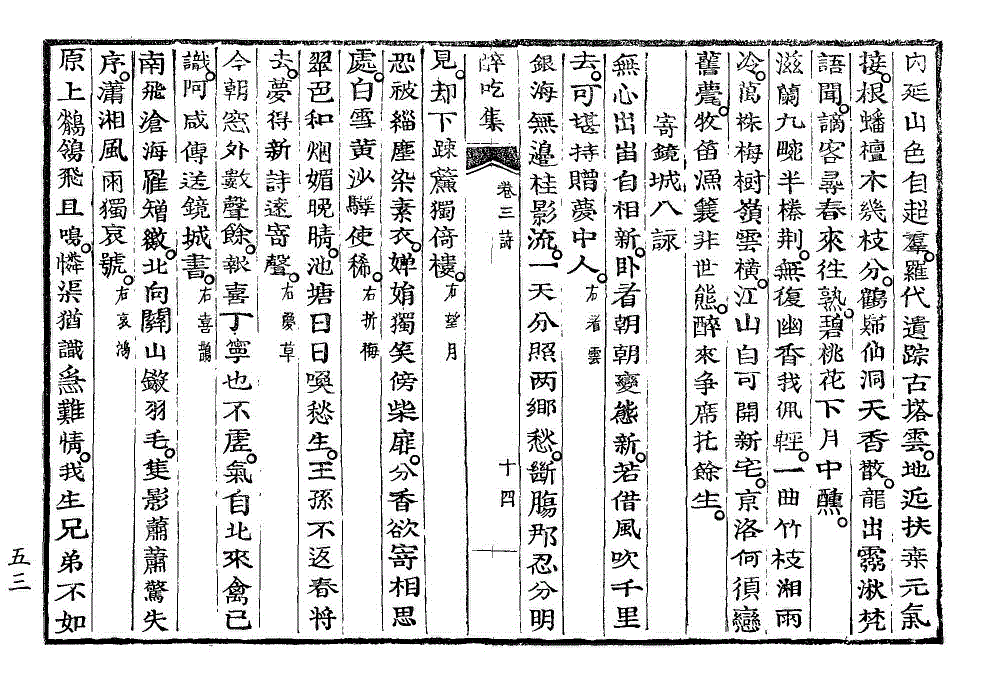 內延山色自超羣羅代遺踪古塔雲地近扶桒元氣
接根蟠檀木幾枝分鶴歸仙洞天香散龍出靈湫梵
語聞謫客尋春來徃熟碧桃花下月中醺
滋蘭九畹半榛荆無復幽香我佩輕一曲竹枝湘雨
冷萬株梅樹嶺雲橫江山自可開新宅京洛何須戀
舊甍牧笛漁簑非世態醉來争席托餘生
寄鏡城八詠
無心出出自相新卧者朝朝變態新若借風吹千里
去可堪持贈夢中人右者雲
銀海無邉桂影流一天分照两鄉愁斷膓那忍分明
醉吃集 卷三 詩 十四
見却下踈簾獨倚樓右望月
恐被緇塵染素衣嬋娟獨笑傍柴扉分香欲寄相思
處白雪黄沙驛使稀右折梅
翠色和烟媚晩晴池塘日日喚愁生王孫不返春將
去夢得新詩逺寄聲右夢草
今朝窓外數聲餘報喜丁寧也不虗氣自北來禽已
識阿咸傳送鏡城書右喜鵲
南飛滄海罹矰繳北向關山鎩羽毛隻影蕭蕭驚失
序瀟湘風雨獨哀號右哀鴻
原上鶺鴒飛且鳴憐渠猶識急難情我生兄弟不如
五三